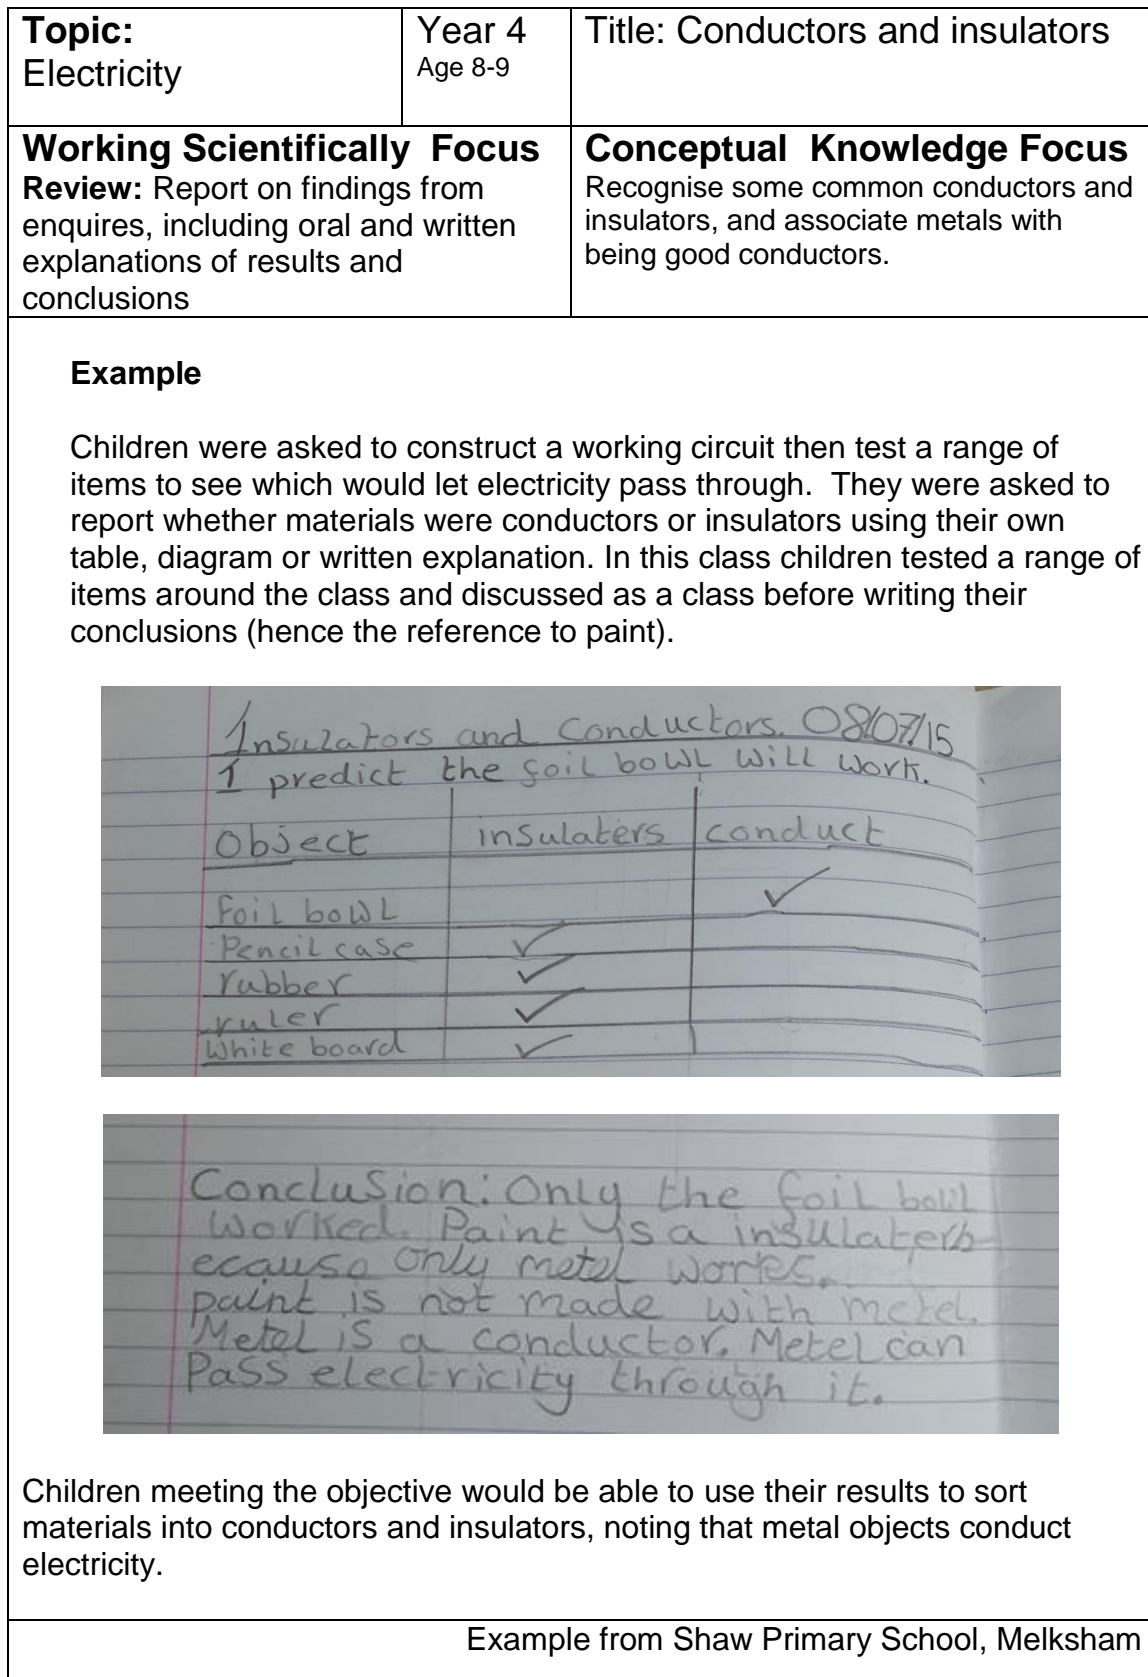 Topic:
Electricity
Year 4
Age 8-9
Title: Conductors and insulators
Working Scientifically Focus
Review: Report on findings from
enquires, including oral and written
explanations of results and
conclusions
Conceptual Knowledge Focus
Recognise some common conductors and
insulators, and associate metals with
being good conductors.
Example
Children were asked to construct a working circuit then test a range of
items to see which would let electricity pass through. They were asked to
report whether materials were conductors or insulators using their own
table, diagram or written explanation. In this class children tested a range of
items around the class and discussed as a class before writing their
conclusions (hence the reference to paint).
Insulators and Conductors. 08/07/15
I predict the foil bowl will work.
Object insulaters conduct
Foil bowl ✓
Pencil case ✓
rubber ✓
ruler ✓
White board ✓
Conclusion: Only the foil bowl
worked. Paint is a insulater b-
ecause only metel works.
paint is not made with metel.
Metel is a conductor. Metel can
Pass electricity through it.
Children meeting the objective would be able to use their results to sort
materials into conductors and insulators, noting that metal objects conduct
electricity.
Example from Shaw Primary School, Melksham